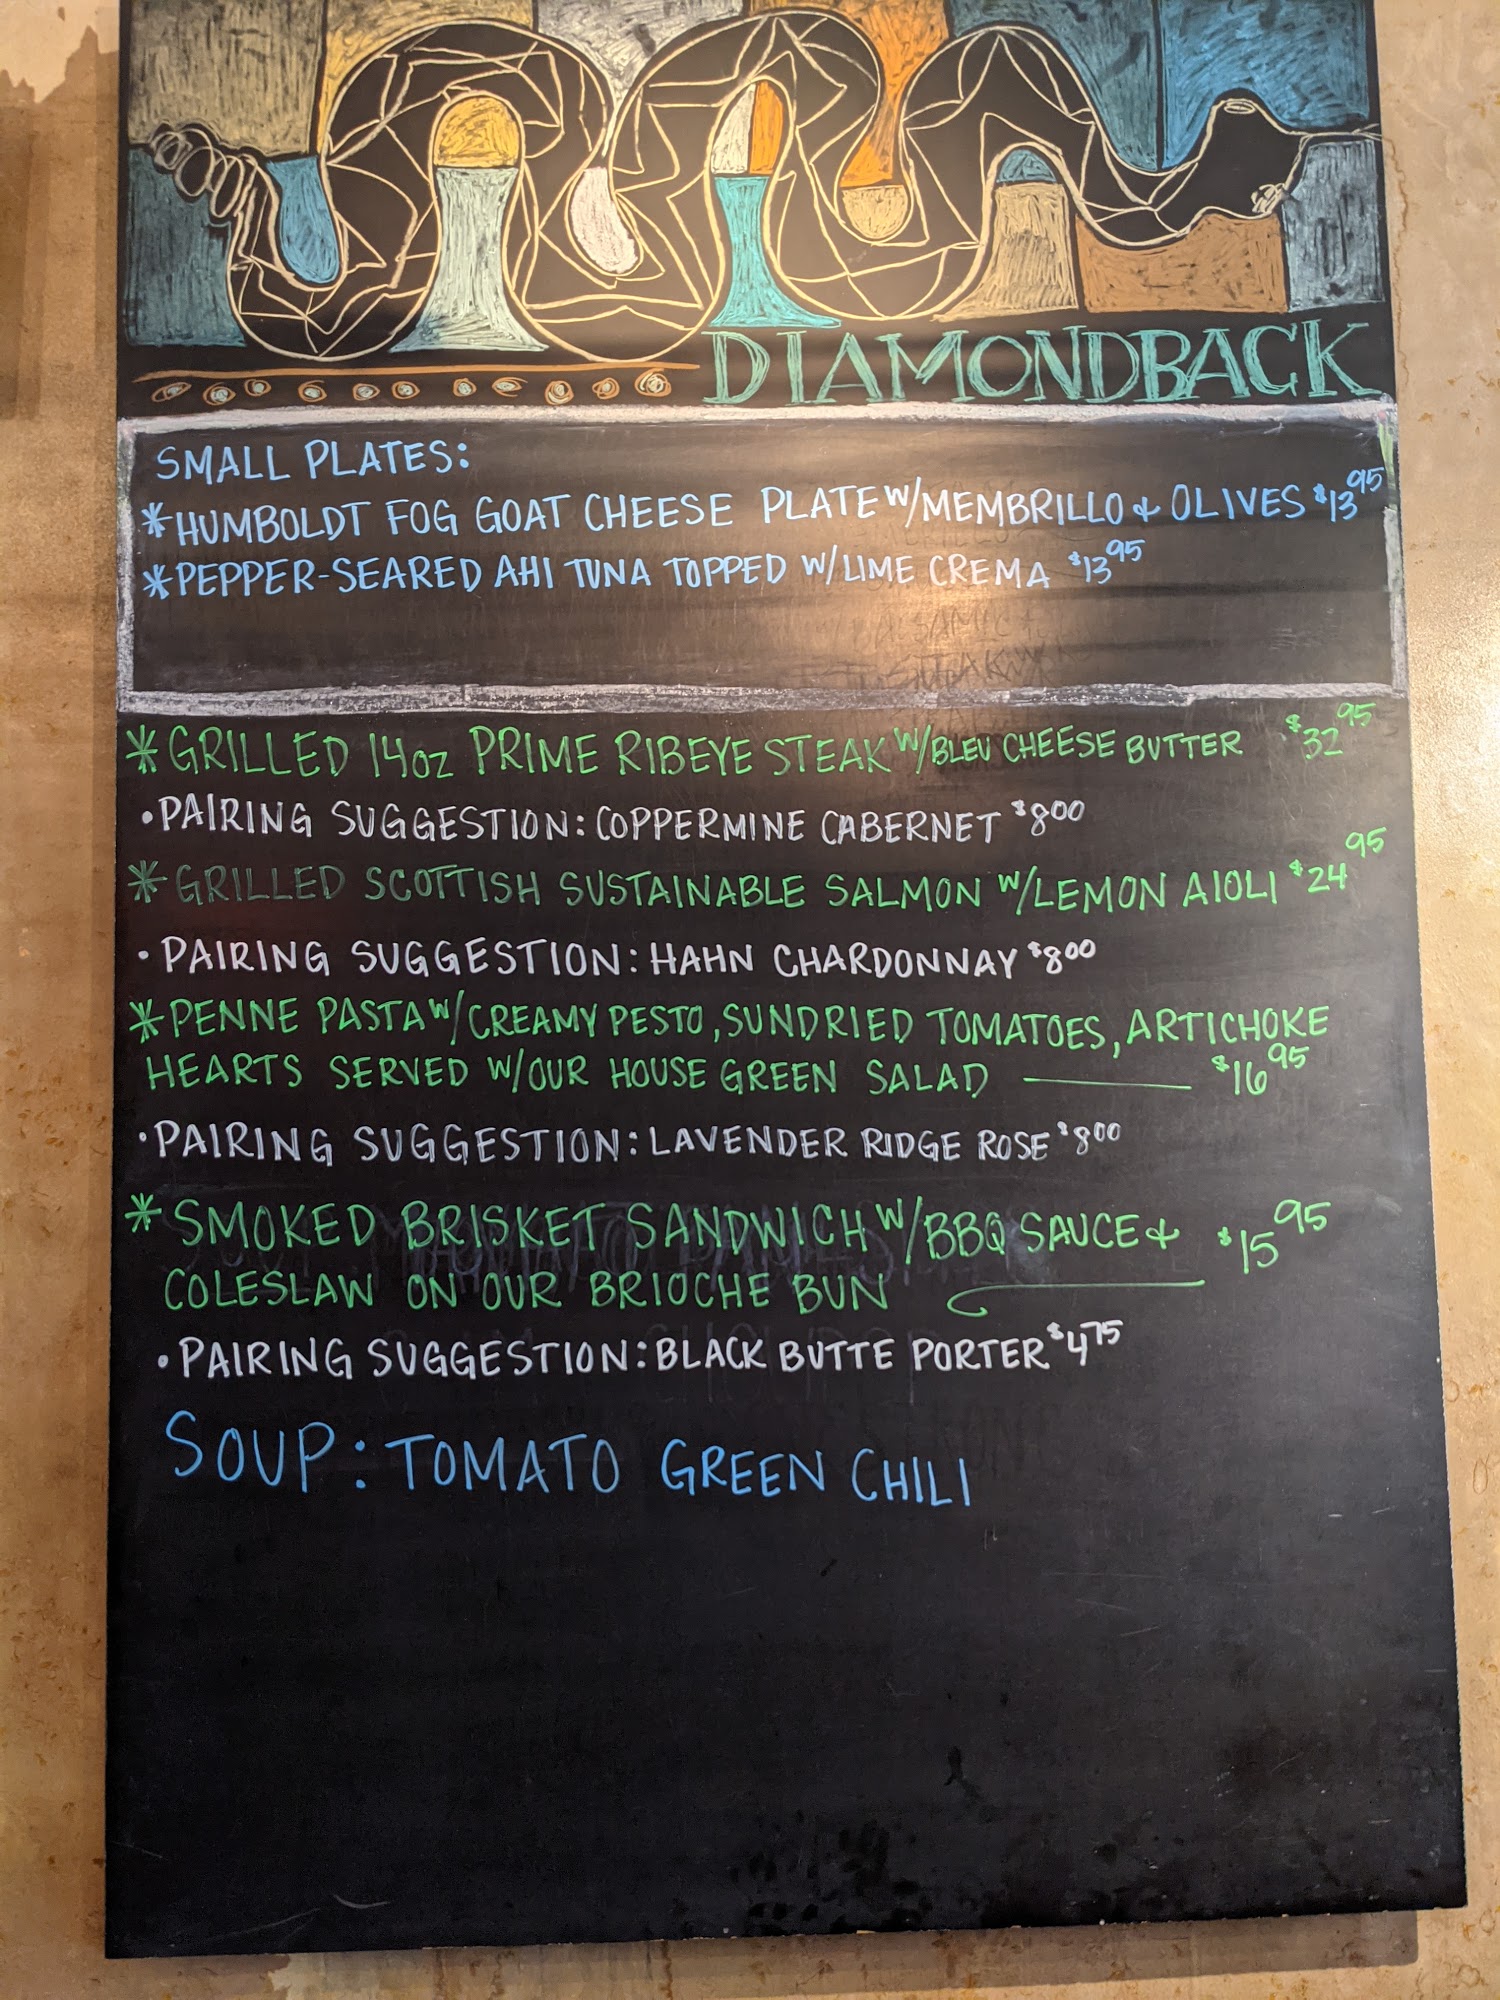 DIAMONDBACK
SMALL PLATES:
*HUMBOLDT FOG GOAT CHEESE PLATE W/MEMBRILLO & OLIVES $13 95
*PEPPER-SEARED AHI TUNA TOPPED W/LIME CREMA $13 95
*GRILLED 14oz PRIME RIBEYE STEAK W/BLEU CHEESE BUTTER $32 95
•PAIRING SUGGESTION: COPPERMINE CABERNET $8 00
*GRILLED SCOTTISH SUSTAINABLE SALMON W/LEMON AIOLI $24 95
•PAIRING SUGGESTION: HAHN CHARDONNAY $8 00
*PENNE PASTA W/CREAMY PESTO, SUNDRIED TOMATOES, ARTICHOKE
HEARTS SERVED W/OUR HOUSE GREEN SALAD — $16 95
•PAIRING SUGGESTION: LAVENDER RIDGE ROSE $8 00
*SMOKED BRISKET SANDWICH W/BBQ SAUCE & $15 95
COLESLAW ON OUR BRIOCHE BUN
•PAIRING SUGGESTION: BLACK BUTTE PORTER $4 75
SOUP: TOMATO GREEN CHILI